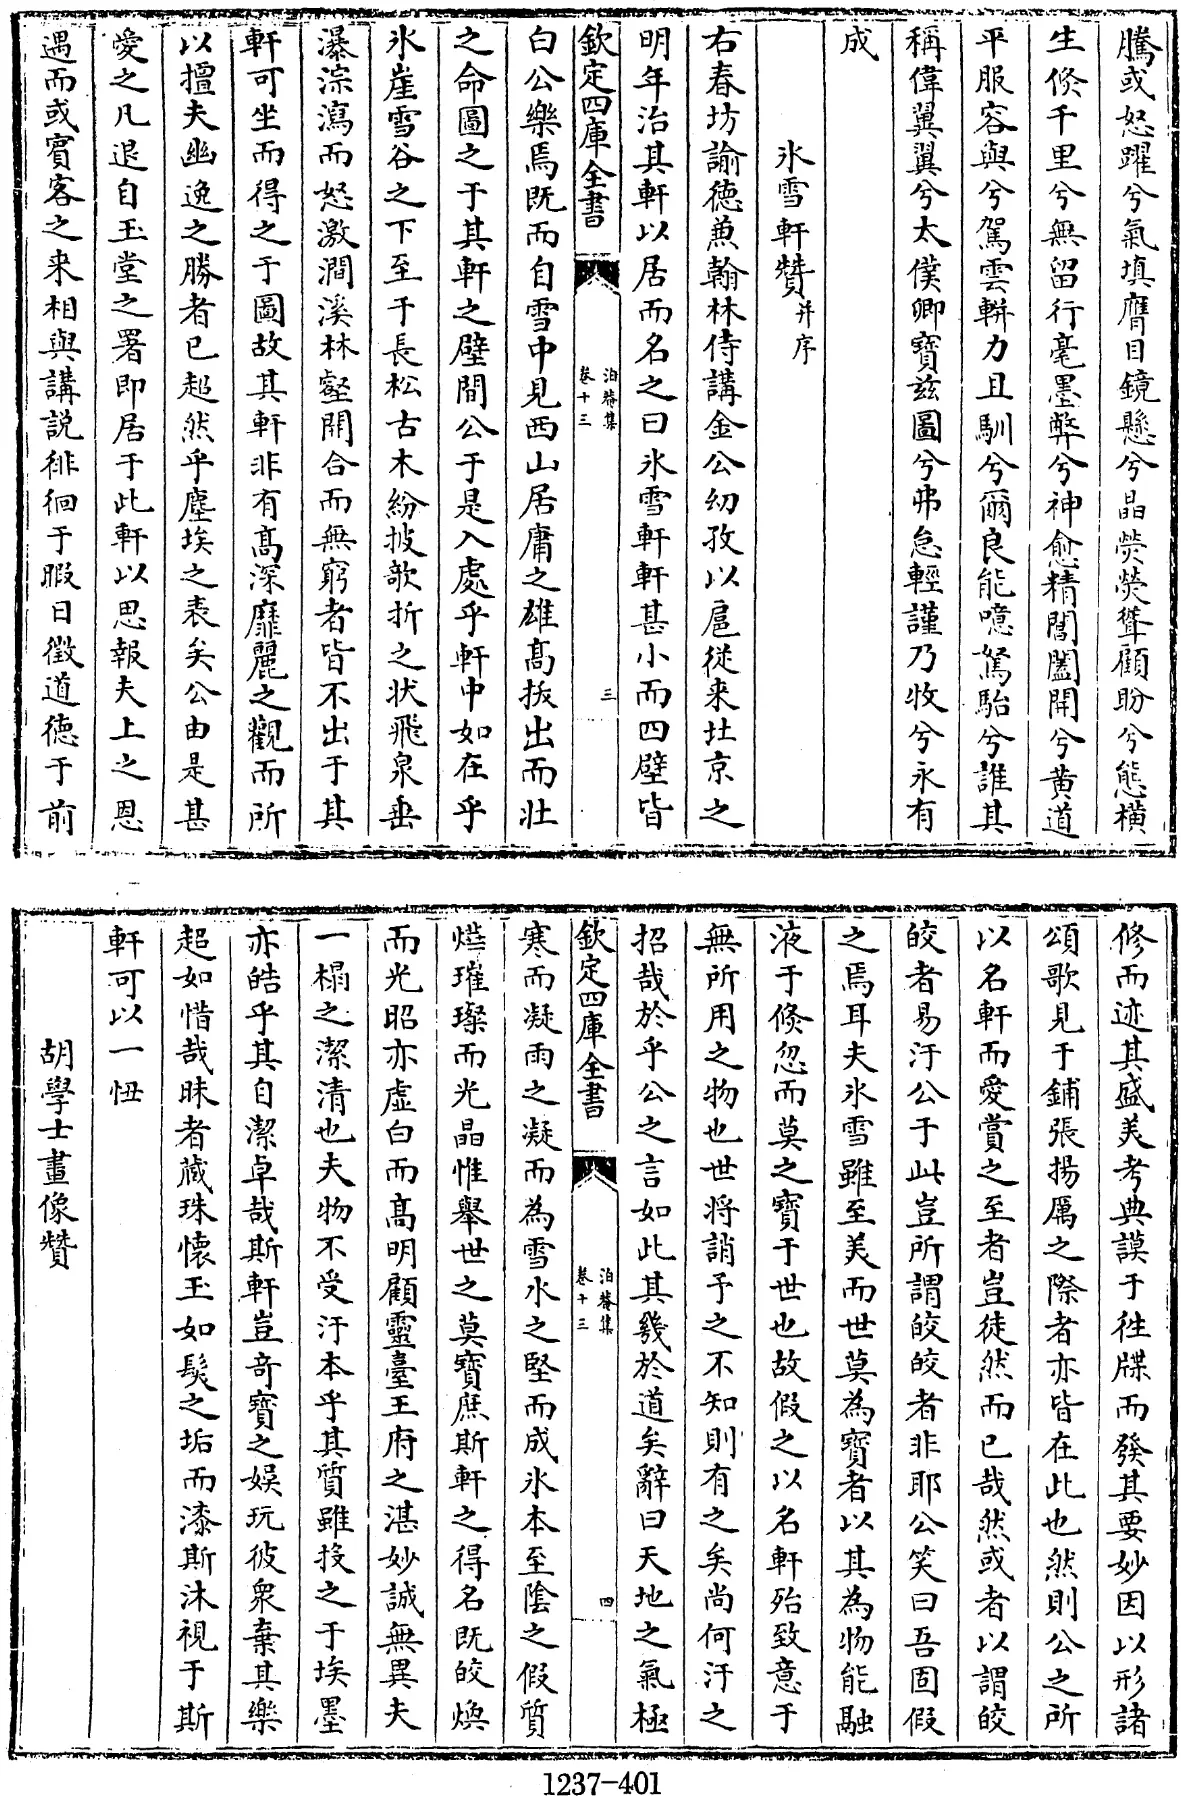 騰或怒躍兮氣填膺目鏡懸兮晶熒熒聳顧盼兮態横
生倐千里兮無留行毫墨弊兮神愈精閶闔開兮黄道
平服容與兮駕雲軿力且馴兮爾良能噫駑駘兮誰其
稱偉翼翼兮太僕卿寶兹圖兮弗怠輕謹乃牧兮永有
成
氷雪軒贊并序
右春坊諭德兼翰林侍講金公幼孜以扈從来北京之
明年治其軒以居而名之曰氷雪軒軒甚小而四壁皆
欽定四庫全書
泊菴集
卷十三
三
白公樂焉既而自雪中見西山居庸之雄髙拔出而壯
之命圖之于其軒之壁間公于是入處乎軒中如在乎
氷崖雪谷之下至于長松古木紛披欹折之状飛泉垂
瀑淙瀉而怒激澗溪林壑開合而無窮者皆不出于其
軒可坐而得之于圖故其軒非有髙深靡麗之觀而所
以擅夫幽逸之勝者已超然乎塵埃之表矣公由是甚
愛之凡退自玉堂之署即居于此軒以思報夫上之恩
遇而或賓客之来相與講説徘徊于暇日徵道德于前
修而迹其盛美考典謨于徃牒而發其要妙因以形諸
頌歌見于鋪張揚厲之際者亦皆在此也然則公之所
以名軒而愛賞之至者豈徒然而已哉然或者以謂皎
皎者易汙公于此豈所謂皎皎者非耶公笑曰吾固假
之焉耳夫氷雪雖至美而世莫為寶者以其為物能融
液于倐忽而莫之寶于世也故假之以名軒殆致意于
無所用之物也世将誚予之不知則有之矣尚何汙之
招哉於乎公之言如此其幾於道矣辭曰天地之氣極
欽定四庫全書
泊菴集
卷十三
四
寒而凝雨之凝而為雪水之堅而成氷本至陰之假質
燁璀璨而光晶惟舉世之莫寶庶斯軒之得名既皎煥
而光昭亦虚白而髙明顧靈臺王府之湛妙誠無異夫
一榻之潔清也夫物不受汙本乎其質雖投之于埃墨
亦皓乎其自潔卓哉斯軒豈竒寶之娱玩彼衆棄其樂
超如惜哉昧者蔵珠懐玉如髮之垢而漆斯沐視于斯
軒可以一忸
胡學士畫像贊
1237-401